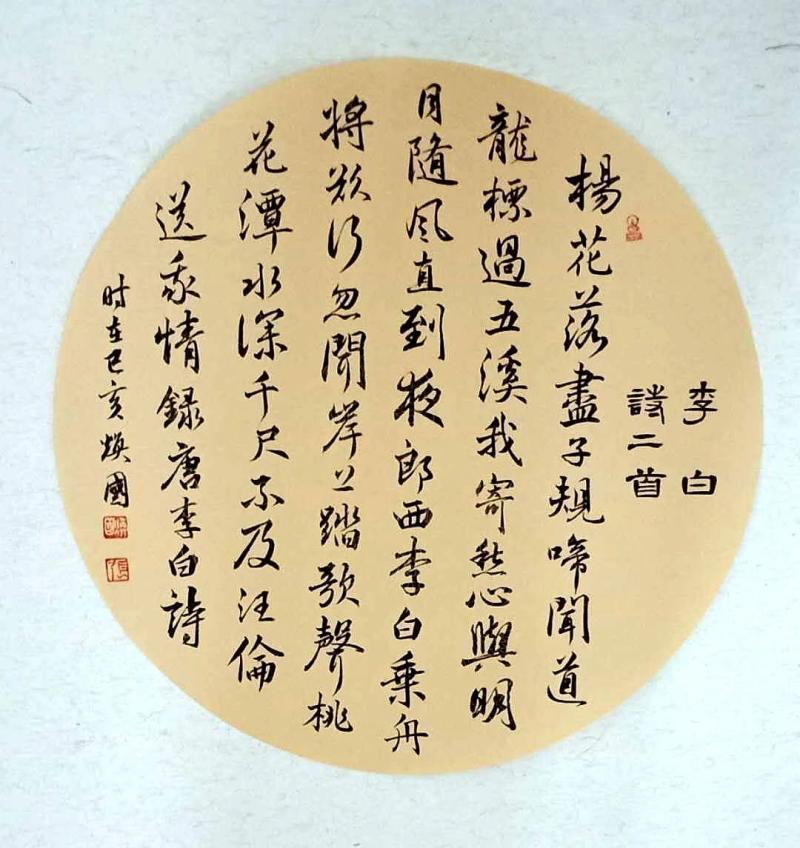 李白
詩二首
楊花落盡子規啼聞道
龍標過五溪我寄愁心與明
月隨风直到夜郎西李白乘舟
將欲行忽聞岸上踏歌聲桃
花潭水深千尺不及汪倫
送我情錄唐李白詩
时在己亥煥國